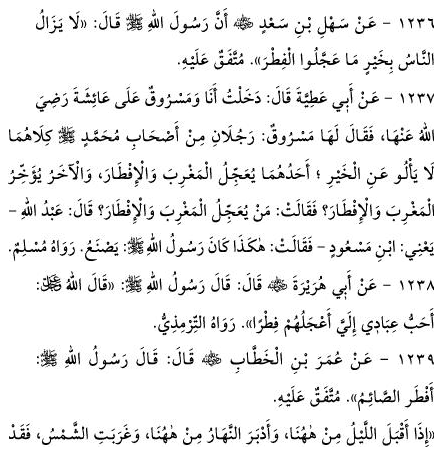 ١٢٣٦ - عَنْ سَهْلِ بْنِ سَعْدٍ ﵁ أَنَّ رَسُولَ اللهِ ﷺ قَالَ: «لَا يَزَالُ
النَّاسُ بِخَيْرٍ مَا عَجَّلُوا الْفِطْرَ». مُتَّفَقٌ عَلَيْهِ.
١٢٣٧ - عَنْ أَبِي عَطِيَّةَ قَالَ: دَخَلْتُ أَنَا وَمَسْرُوقٌ عَلَى عَائِشَةَ رَضِيَ
اللهُ عَنْهَا، فَقَالَ لَهَا مَسْرُوقٌ: رَجُلَانِ مِنْ أَصْحَابِ مُحَمَّدٍ ﷺ كِلَاهُمَا
لَا يَأْلُو عَنِ الْخَيْرِ ؛ أَحَدُهُمَا يُعَجِّلُ الْمَغْرِبَ وَالْإِفْطَارَ، وَالْآخَرُ يُؤَخِّرُ
الْمَغْرِبَ وَالْإِفْطَارَ؟ فَقَالَتْ: مَنْ يُعَجِّلُ الْمَغْرِبَ وَالْإِفْطَارَ؟ قَالَ: عَبْدُ اللهِ -
يَعْنِي: ابْنِ مَسْعُودٍ - فَقَالَتْ: هٰكَذَا كَانَ رَسُولُ اللهِ ﷺ: يَصْنَعُ. رَوَاهُ مُسْلِمٌ.
١٢٣٨ - عَنْ أَبِي هُرَيْرَةَ ﵁ قَالَ: قَالَ رَسُولُ اللهِ ﷺ: «قَالَ اللهُ ﷻ:
أَحَبُّ عِبَادِي إِلَيَّ أَعْجَلُهُمْ فِطْرًا». رَوَاهُ التِّرْمِذِيُّ.
١٢٣٩ - عَنْ عُمَرَ بْنِ الْخَطَّابِ ﵁ قَالَ: قَالَ رَسُولُ اللهِ ﷺ:
أَفْطَرَ الصَّائِمُ». مُتَّفَقٌ عَلَيْهِ.
«إِذَا أَقْبَلَ اللَّيْلُ مِنْ هٰهُنَا، وَأَدْبَرَ النَّهَارُ مِنْ هٰهُنَا، وَغَرَبَتِ الشَّمْسُ، فَقَدْ